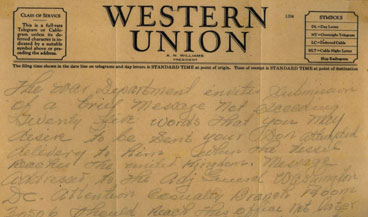 CLASS OF SERVICE
This is a full-rate
Telegram or Cable-
gram unless its de-
ferred character is in-
dicated by a suitable
symbol above or pre-
ceding the address.
WESTERN
UNION
A. N. WILLIAMS
PRESIDENT
SYMBOLS
DL=Day Letter
NL=Overnight Telegram
LC=Deferred Cable
NLT=Cable Night Letter
Ship Radiogram
The filing time shown in the date line on telegrams and day letters is STANDARD TIME at point of origin. Time of receipt is STANDARD TIME at point of destination
The War Department invites submission
of brief message not exceeding
Twenty five words that you may
desire to be sent your son
delivery to him when he
reaches the United Kingdom. Message
address to the Adj General Washington
DC. Attention Casualty Branch Room
should reach this office not later